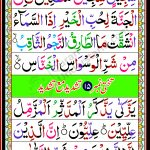 الْجَنَّةَ لِحُبِّ الْخَيْرِ إِذَا السَّمَآءُ
انْشَقَّتْ مَاالطَّارِقُ النَّجْمُ الثَّاقِبُ
مِنْ شَرِّ الْوَسْوَاسِ الْخَنَّاسِ
تختی نمبر ۱۵ تشدید مع تشدید
يَزَّكّٰى يَذَّكَّرُ الْمُدَّثِّرُ الْمُزَّمِّلُ
عِلِّيِّيْنَ عِلِّيُّوْنَ اِنَّ الَّذِيْنَ